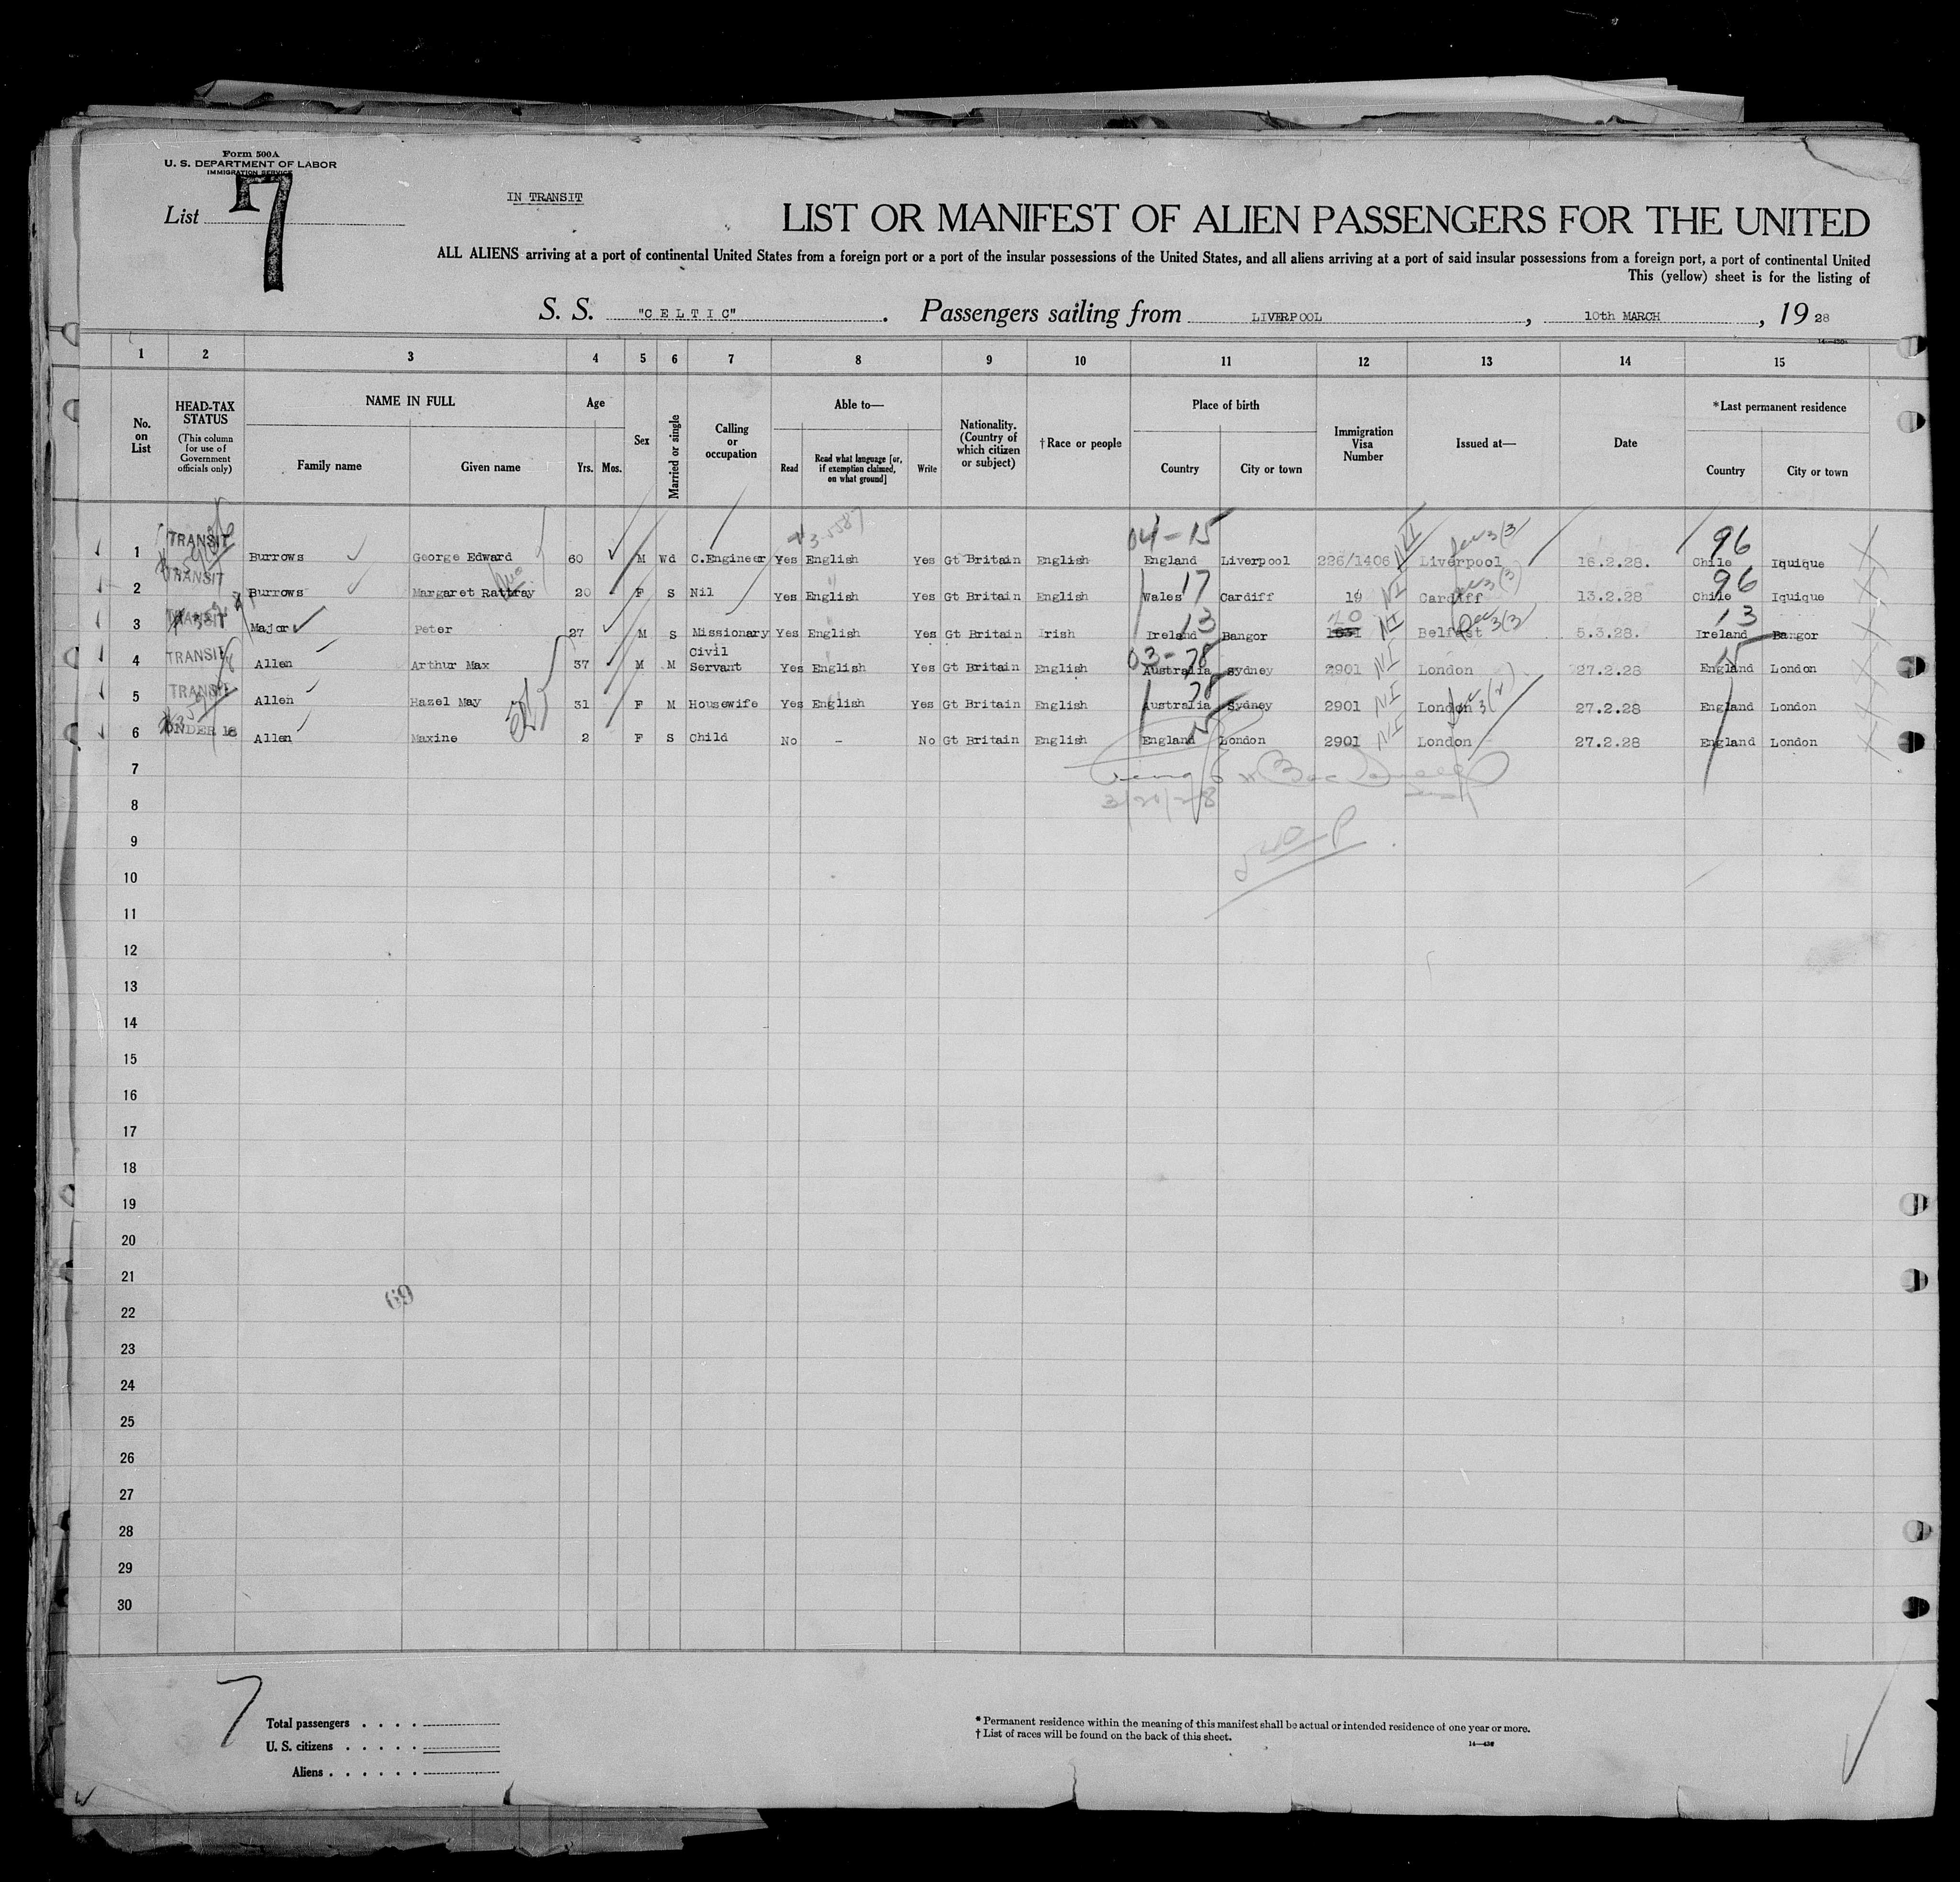 Form 500A
U. S. DEPARTMENT OF LABOR
IMMIGRATION SERVICE
List 7
IN TRANSIT
LIST OR MANIFEST OF ALIEN PASSENGERS FOR THE UNITED
ALL ALIENS arriving at a port of continental United States from a foreign port or a port of the insular possessions of the United States, and all aliens arriving at a port of said insular possessions from a foreign port, a port of continental United
This (yellow) sheet is for the listing of
S. S. "CELTIC". Passengers sailing from LIVERPOOL, 10th MARCH, 1928
14—430
1 2 3 4 5 6 7 8 9 10 11 12 13 14 15
No. on List
HEAD-TAX STATUS
(This column for use of Government officials only)
NAME IN FULL
Family name Given name
Age
Yrs. Mos.
Sex
Married or single
Calling or occupation
Able to—
Read Read what language [or, if exemption claimed, on what ground] Write
Nationality. (Country of which citizen or subject)
†Race or people
Place of birth
Country City or town
Immigration Visa Number
Issued at—
Date
*Last permanent residence
Country City or town
04-15 96
1 TRANSIT Burrows George Edward 60 M Wd C.Engineer Yes English Yes Gt Britain English England Liverpool 226/1406 NI Liverpool 16.2.28. Chile Iquique
17 96
2 TRANSIT Burrows Margaret Rattray 20 F S Nil Yes English Yes Gt Britain English Wales Cardiff 19 NI Cardiff 13.2.28 Chile Iquique
13 20 13
3 TRANSIT Major Peter 27 M S Missionary Yes English Yes Gt Britain Irish Ireland Bangor NI Belfast 5.3.28. Ireland Bangor
03-78 15
4 TRANSIT Allen Arthur Max 37 M M Civil Servant Yes English Yes Gt Britain English Australia Sydney 2901 NI London 27.2.28 England London
78
5 TRANSIT Allen Hazel May 31 F M Housewife Yes English Yes Gt Britain English Australia Sydney 2901 NI London 27.2.28 England London
15
6 UNDER 16 Allen Maxine 2 F S Child No - No Gt Britain English England London 2901 NI London 27.2.28 England London
7
3/20/28
8
9
10
11
12
13
14
15
16
17
18
19
20
21
69
22
23
24
25
26
27
28
29
30
7
Total passengers
U. S. citizens
Aliens
*Permanent residence within the meaning of this manifest shall be actual or intended residence of one year or more.
†List of races will be found on the back of this sheet.
14—430